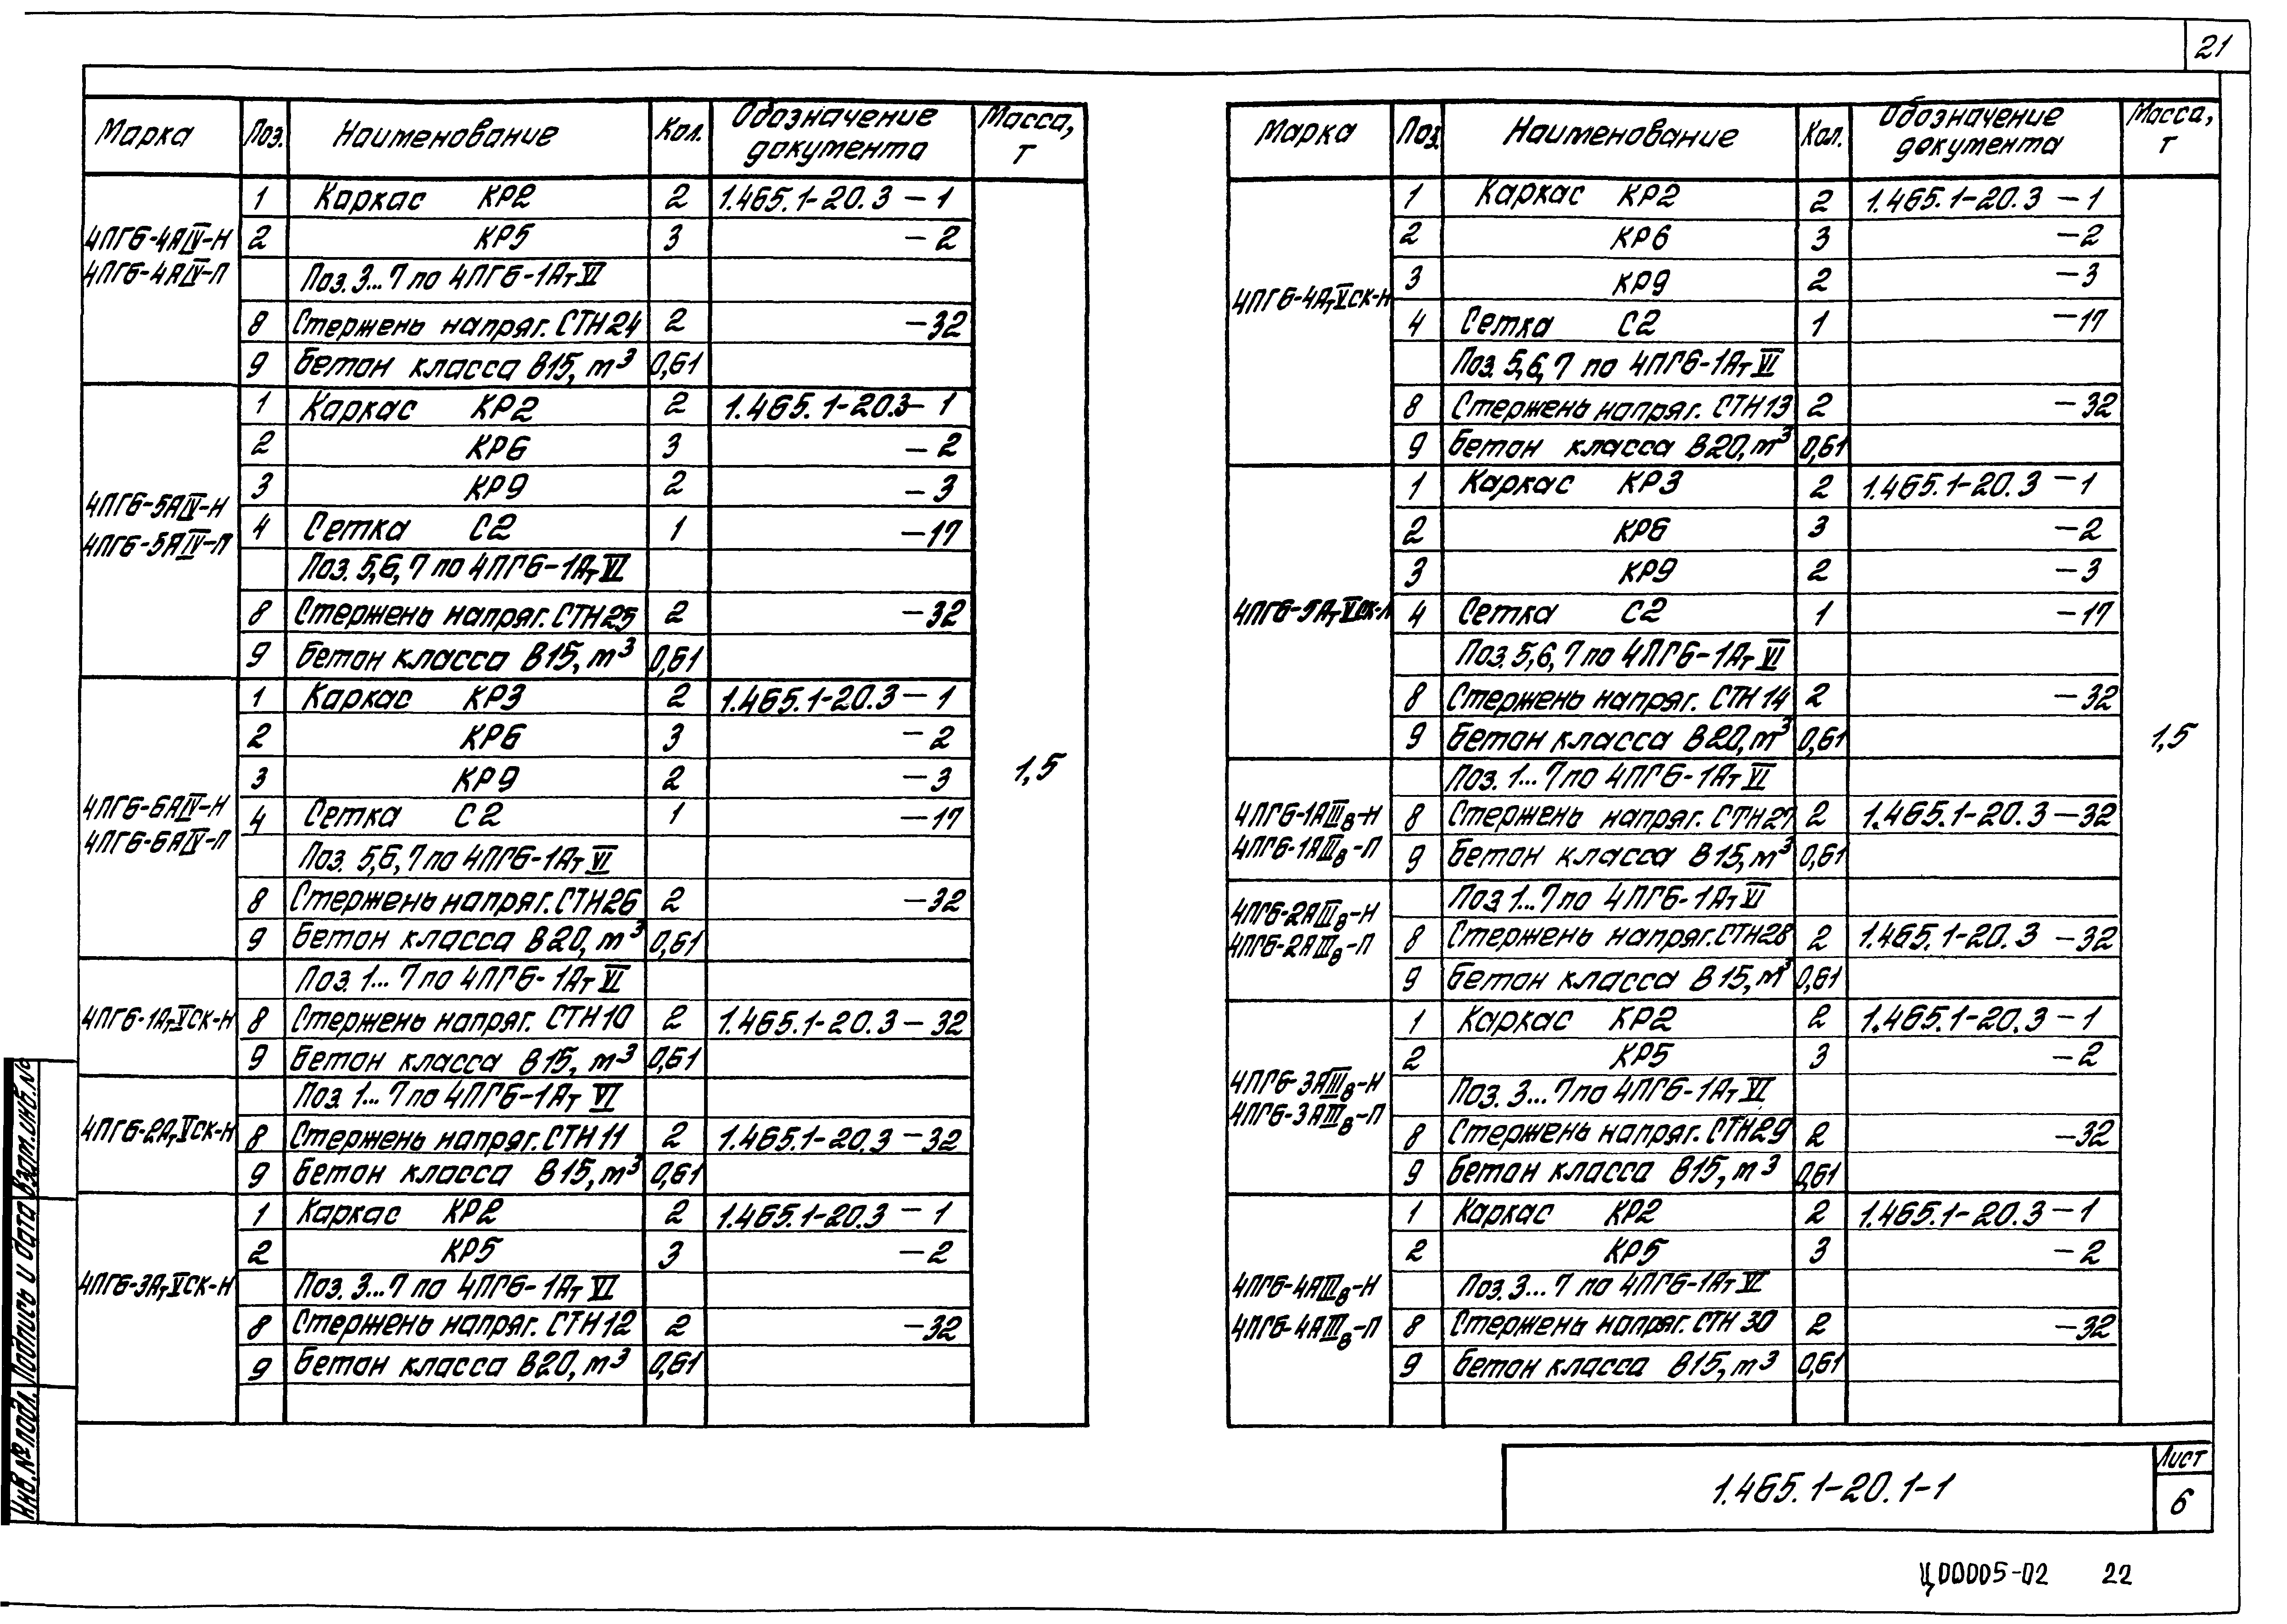 21
Марка Поз. Наименование Кол. Обозначение документа Масса, т
4ПГ6-4АIV-Н
4ПГ6-4АIV-П
1 Каркас КР2 2 1.465.1-20.3 - 1
2 КР5 3 - 2
Поз. 3...7 по 4ПГ6-1АтVI
8 Стержень напряг. СТН24 2 - 32
9 Бетон класса В15, м³ 0,61
4ПГ6-5АIV-Н
4ПГ6-5АIV-П
1 Каркас КР2 2 1.465.1-20.3 - 1
2 КР6 3 - 2
3 КР9 2 - 3
4 Сетка С2 1 - 17
Поз. 5,6,7 по 4ПГ6-1АтVI
8 Стержень напряг. СТН25 2 - 32
9 Бетон класса В15, м³ 0,61
4ПГ6-6АIV-Н
4ПГ6-6АIV-П
1 Каркас КР3 2 1.465.1-20.3 - 1
2 КР6 3 - 2
3 КР9 2 - 3
4 Сетка С2 1 - 17
Поз. 5,6,7 по 4ПГ6-1АтVI
8 Стержень напряг. СТН26 2 - 32
9 Бетон класса В20, м³ 0,61
4ПГ6-1АтVСК-Н
Поз. 1...7 по 4ПГ6-1АтVI
8 Стержень напряг. СТН10 2 1.465.1-20.3 - 32
9 Бетон класса В15, м³ 0,61
4ПГ6-2АтVСК-Н
Поз. 1...7 по 4ПГ6-1АтVI
8 Стержень напряг. СТН11 2 1.465.1-20.3 - 32
9 Бетон класса В15, м³ 0,61
4ПГ6-3АтVСК-Н
1 Каркас КР2 2 1.465.1-20.3 - 1
2 КР5 3 - 2
Поз. 3...7 по 4ПГ6-1АтVI
8 Стержень напряг. СТН12 2 - 32
9 Бетон класса В20, м³ 0,61
1,5
Марка Поз. Наименование Кол. Обозначение документа Масса, т
4ПГ6-4АтVСК-Н
1 Каркас КР2 2 1.465.1-20.3 - 1
2 КР6 3 - 2
3 КР9 2 - 3
4 Сетка С2 1 - 17
Поз. 5,6,7 по 4ПГ6-1АтVI
8 Стержень напряг. СТН13 2 - 32
9 Бетон класса В20, м³ 0,61
4ПГ6-5АтVСК-Н
1 Каркас КР3 2 1.465.1-20.3 - 1
2 КР6 3 - 2
3 КР9 2 - 3
4 Сетка С2 1 - 17
Поз. 5,6,7 по 4ПГ6-1АтVI
8 Стержень напряг. СТН14 2 - 32
9 Бетон класса В20, м³ 0,61
4ПГ6-1АIIIв-Н
4ПГ6-1АIIIв-П
Поз. 1...7 по 4ПГ6-1АтVI
8 Стержень напряг. СТН27 2 1.465.1-20.3 - 32
9 Бетон класса В15, м³ 0,61
4ПГ6-2АIIIв-Н
4ПГ6-2АIIIв-П
Поз. 1...7 по 4ПГ6-1АтVI
8 Стержень напряг. СТН28 2 1.465.1-20.3 - 32
9 Бетон класса В15, м³ 0,61
4ПГ6-3АIIIв-Н
4ПГ6-3АIIIв-П
1 Каркас КР2 2 1.465.1-20.3 - 1
2 КР5 3 - 2
Поз. 3...7 по 4ПГ6-1АтVI
8 Стержень напряг. СТН29 2 - 32
9 Бетон класса В15, м³ 0,61
4ПГ6-4АIIIв-Н
4ПГ6-4АIIIв-П
1 Каркас КР2 2 1.465.1-20.3 - 1
2 КР5 3 - 2
Поз. 3...7 по 4ПГ6-1АтVI
8 Стержень напряг. СТН30 2 - 32
9 Бетон класса В15, м³ 0,61
1,5
Инв. № подл. Подпись и дата Взам. инв. №
1.465.1-20.1-1
Лист
6
Ц00005-02 22